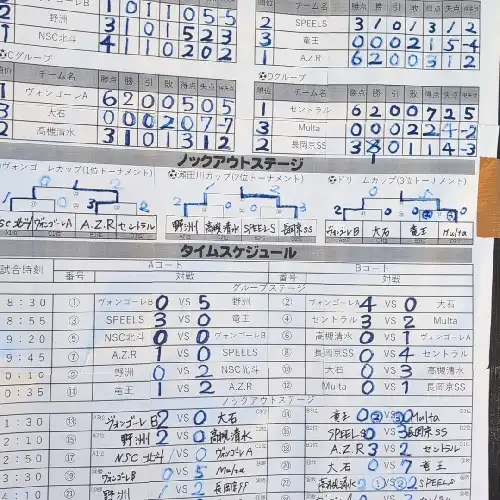 ヴォンゴーレB 1 0 1 1 0 5 -5
2 野洲 3 1 0 1 5 2 3
1 NSC北斗 4 1 1 0 2 0 2
順位 チーム名 勝点 勝 引 敗 得点 失点
2 SPEELS 3 1 0 1 3 1 2
3 竜王 0 0 0 2 1 5 -4
1 A.Z.R 6 2 0 0 3 1 2
Cグループ
順位 チーム名 勝点 勝 引 敗 得点 失点
1 ヴォンゴーレA 6 2 0 0 5 0 5
3 大石 0 0 0 2 0 7 -7
2 高槻清水 3 1 0 1 3 1 2
Dグループ
順位 チーム名 勝点 勝 引 敗 得点 失点
1 セントラル 6 2 0 0 7 2 5
3 Multa 0 0 0 2 2 4 -2
2 長岡京SS 3 1 0 1 1 4 -3
ノックアウトステージ
ヴォンゴーレカップ(1位トーナメント)
NSC北斗 ヴォンゴーレA A.Z.R セントラル
瀬田川カップ(2位トーナメント)
野洲 高槻清水 SPEELS 長岡京SS
ドリームカップ(3位トーナメント)
ヴォンゴーレB 大石 竜王 Multa
タイムスケジュール
試合時刻 Aコート Bコート
番号 対戦 番号 対戦
グループステージ
8:30 ① ヴォンゴーレB 0 VS 5 野洲 ② ヴォンゴーレA 4 VS 0 大石
8:55 ③ SPEELS 3 VS 0 竜王 ④ セントラル 3 VS 2 Multa
9:20 ⑤ NSC北斗 0 VS 0 ヴォンゴーレB ⑥ 高槻清水 0 VS 1 ヴォンゴーレA
9:45 ⑦ A.Z.R 1 VS 0 SPEELS ⑧ 長岡京SS 0 VS 4 セントラル
0:10 ⑨ 野洲 0 VS 2 NSC北斗 ⑩ 大石 0 VS 3 高槻清水
0:35 ⑪ 竜王 1 VS 2 A.Z.R ⑫ Multa 0 VS 1 長岡京SS
ノックアウトステージ
1:30 ⑬ ヴォンゴーレB 2 VS 0 大石 ⑭ 竜王 0 ② VS ③ 0 Multa
2:10 ⑮ 野洲 2 VS 0 高槻清水 ⑯ SPEELS 0 VS 3 長岡京SS
2:50 ⑰ NSC北斗 1 VS 0 ヴォンゴーレA ⑱ A.Z.R 3 VS 2 セントラル
ヴォンゴーレB 0 VS 5 Multa 大石 0 VS 7 竜王
野洲 1 VS 2 長岡京SS 高槻清水 2 ① VS ② 2 SPEELS